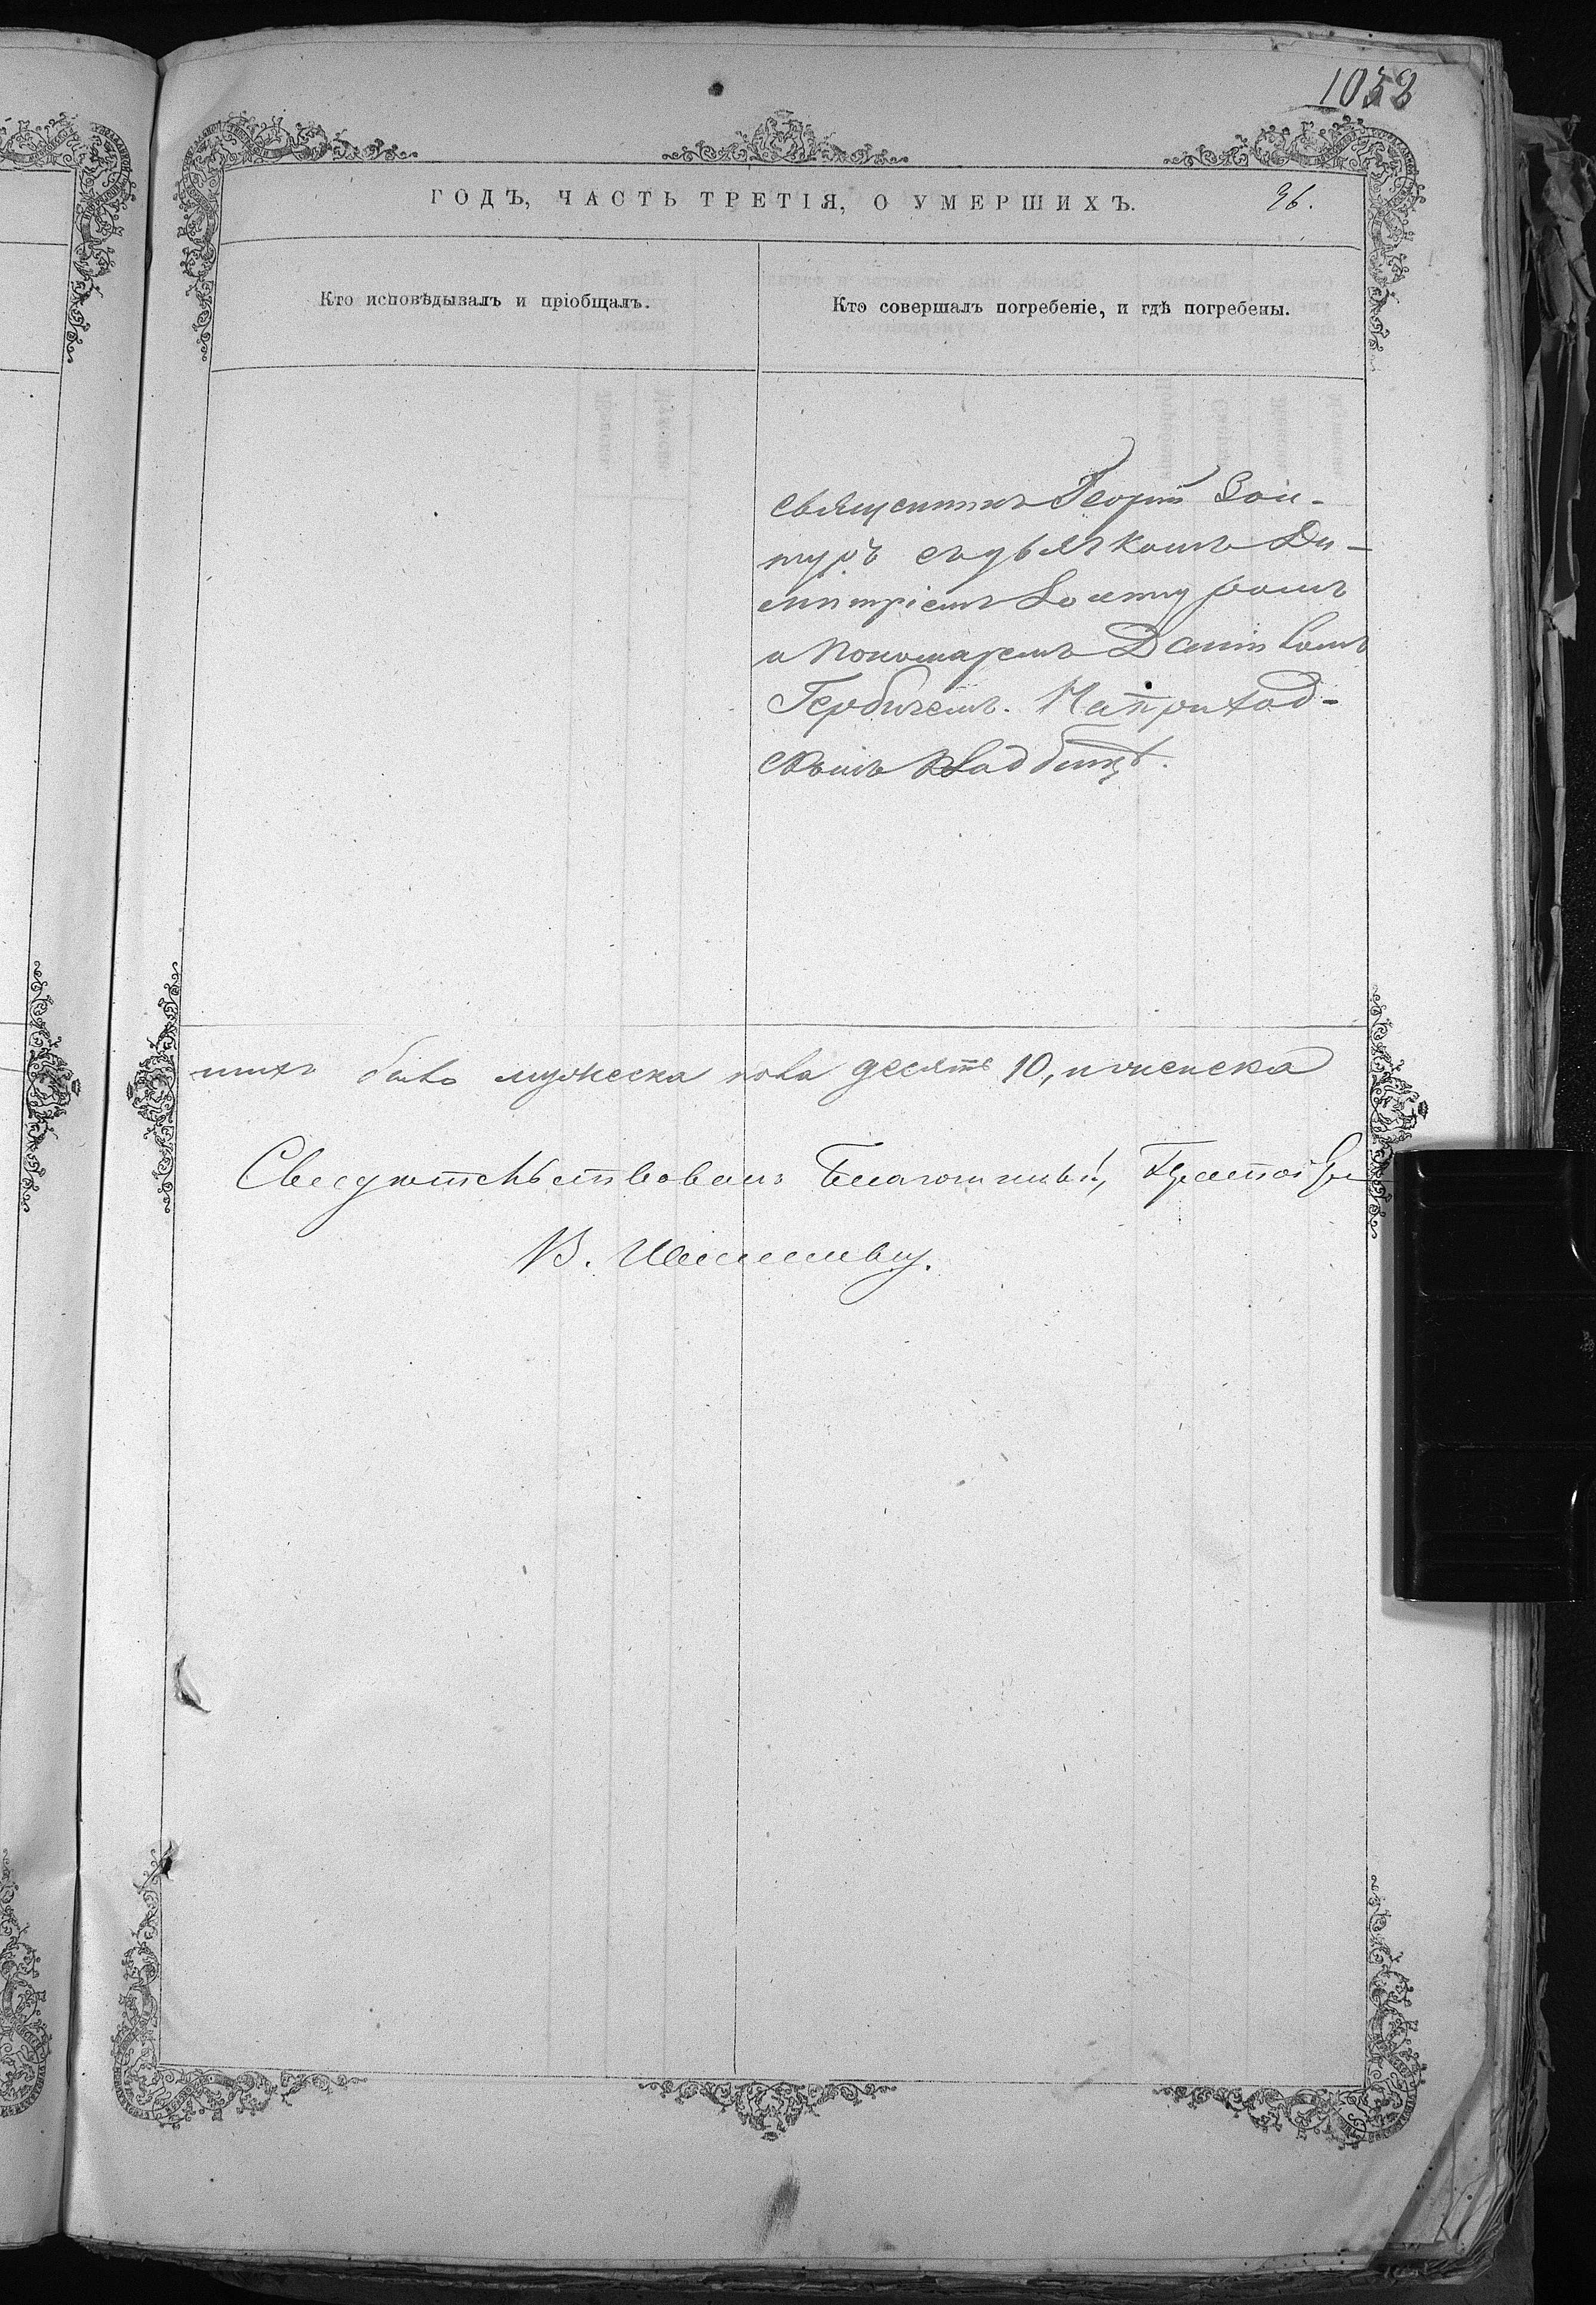 1058
ГОДЪ, ЧАСТЬ ТРЕТІЯ, О УМЕРШИХЪ.
36.
Кто исповѣдывалъ и пріобщалъ.
Кто совершалъ погребеніе, и гдѣ погребены.
Священникъ Георгій
съ дьячкомъ Ди-
митріемъ
и пономаремъ Даніиломъ
Гербичемъ. На приход-
скомъ кладбищѣ.
шихъ было мужеска пола десять 10, и женска
Свидѣтельствовалъ Благочинный,
В.